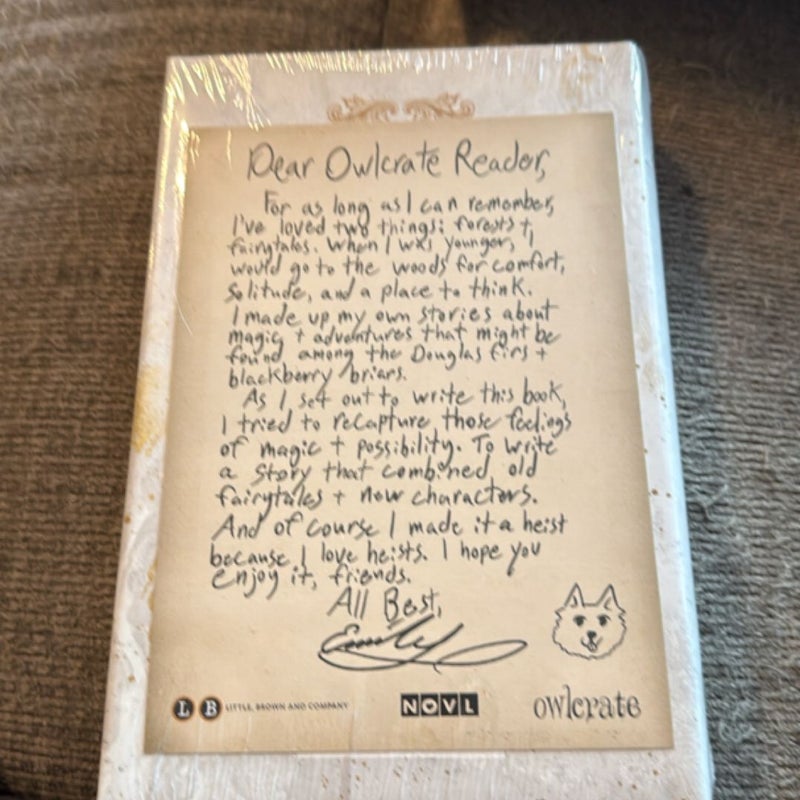 Dear Owlcrate Reader,
For as long as I can remember,
I've loved two things: forests +
fairytales. When I was younger, I
would go to the woods for comfort,
Solitude, and a place to think.
I made up my own stories about
magic + adventures that might be
found among the Douglas firs +
blackberry briars.
As I set out to write this book,
I tried to recapture those feelings
of magic + possibility. To write
a story that combined old
fairytales + new characters.
And of course I made it a heist
because I love heists. I hope you
enjoy it, friends.
All Best,
Emily
L B LITTLE, BROWN AND COMPANY
NOVL
owlcrate